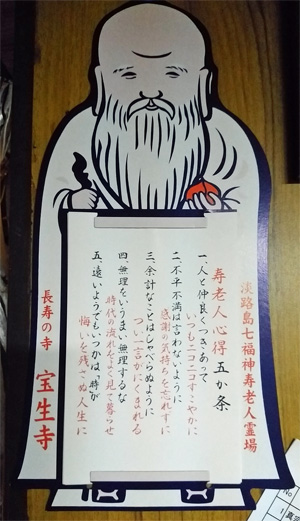 淡路島七福神寿老人霊場
寿老人心得 五か条
一、人と仲良くつきあって
いつもニコニコすこやかに
二、不平不満は言わないように
感謝の気持ちを忘れずに
三、余計なことはしゃべらぬように
つい一言がにくまれる
四、無理をいうまい無理するな
時代の流れをよく見て暮らせ
五、遠いようでもいつかは、時が
悔いを残さぬ人生に
長寿の寺 宝生寺
No
1